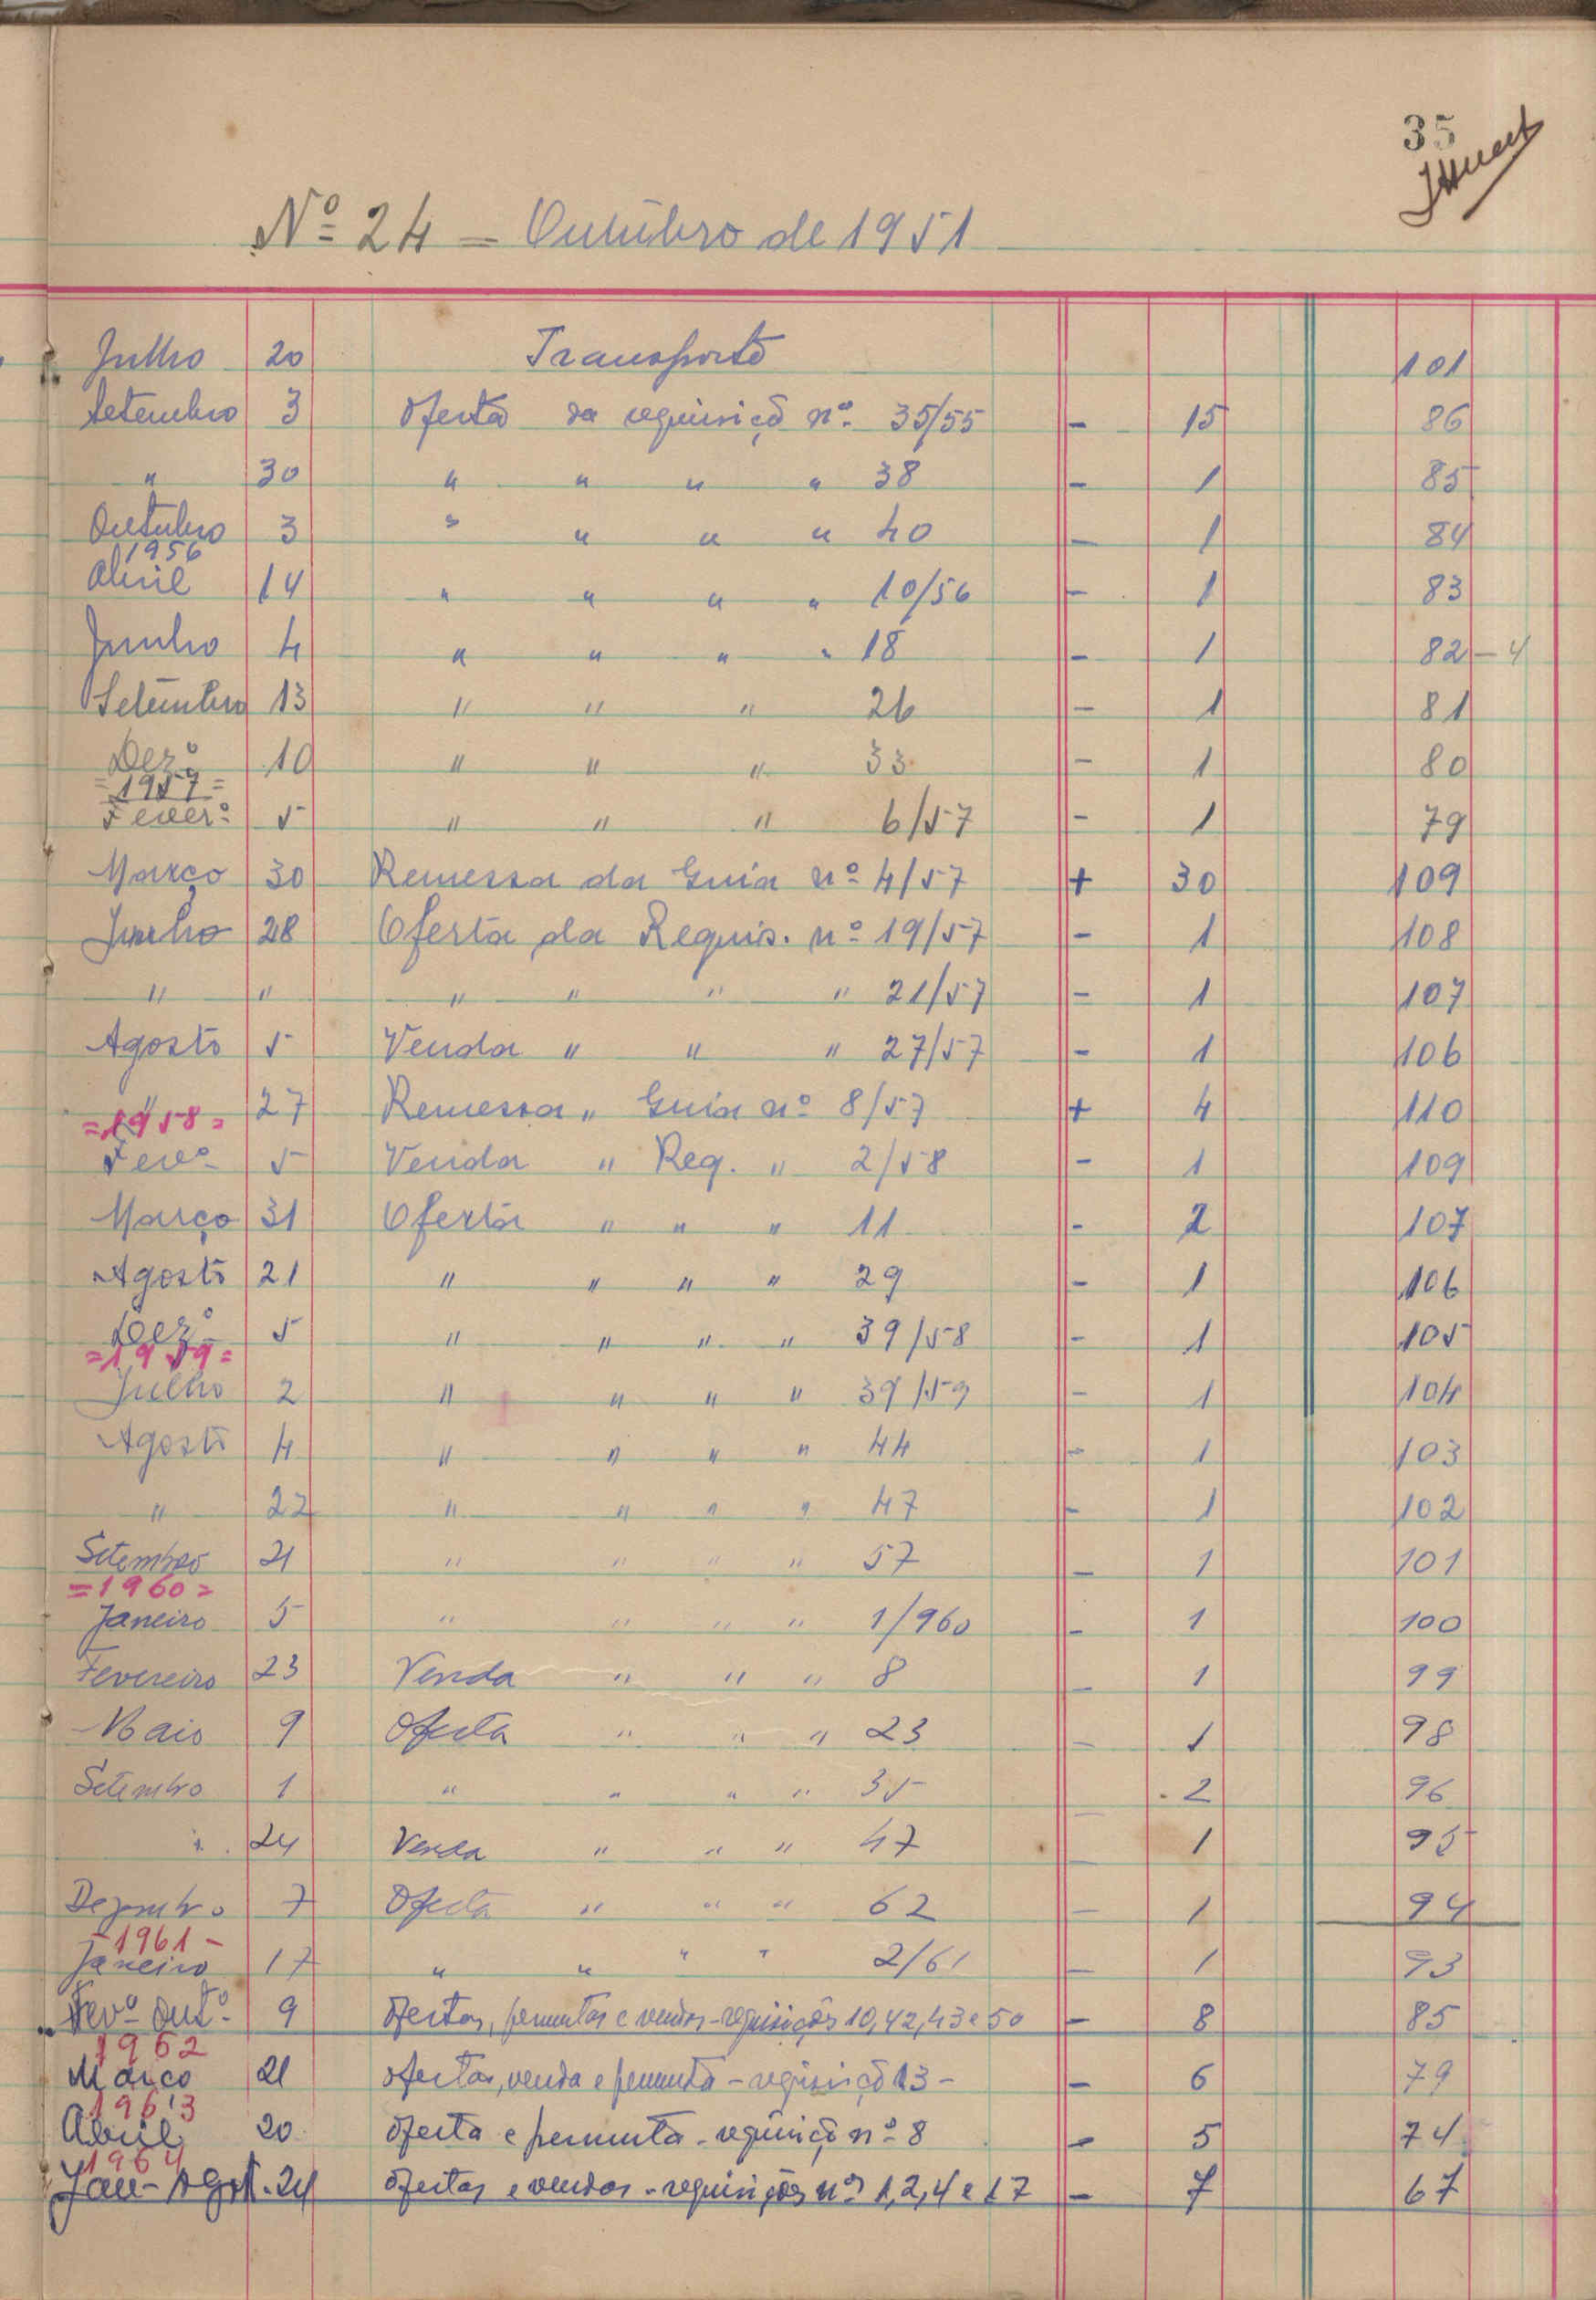 35
Nº 24 = Outubro de 1951
Julho 20 Transporte 101
Setembro 3 Oferta da requisiçõ nº 35/55 - 15 86
" 30 " " " " 38 - 1 85
Outubro 3 " " " " 40 - 1 84
1956
Abril 14 " " " " 10/56 - 1 83
Junho 4 " " " " 18 - 1 82 - 4
Setembro 13 " " " 26 - 1 81
Dezº 10 " " " 33 - 1 80
=1957=
Feverº 5 " " " 6/57 - 1 79
Março 30 Remessa da Guia nº 4/57 + 30 109
Junho 28 Oferta da Requis. nº 19/57 - 1 108
" " " " " " 21/57 - 1 107
Agosto 5 Venda " " " 27/57 - 1 106
" 27 Remessa " Guia nº 8/57 + 4 110
=1958=
Fevº 5 Venda " Req. " 2/58 - 1 109
Março 31 Oferta " " " 11 - 2 107
Agosto 21 " " " " 29 - 1 106
Dezº 5 " " " " 39/58 - 1 105
=1959=
Julho 2 " " " " 39/59 - 1 104
Agosto 4 " " " " 44 - 1 103
" 22 " " " " 47 - 1 102
Setembro 21 " " " " 57 - 1 101
=1960=
Janeiro 5 " " " " 1/960 - 1 100
Fevereiro 23 Venda " " " 8 - 1 99
Maio 9 Oferta " " " 23 - 1 98
Setembro 1 " " " " 35 - 2 96
" 24 Venda " " " 47 - 1 95
Dezembro 7 Oferta " " " 62 - 1 94
-1961-
Janeiro 17 " " " " 2/61 - 1 93
Fevº Outº 9 Ofertas, permutas e vendas - requisições 10, 42, 43 e 50 - 8 85
1962
Março 21 Ofertas, venda e permuta - requisiçõ 13 - - 6 79
1963
Abril 20 Oferta e permuta - requisiçõ nº 8 - 5 74
1964
Jan - Agost. 24 Ofertas e vendas - requisições nºs 1, 2, 4 e 17 - 7 67